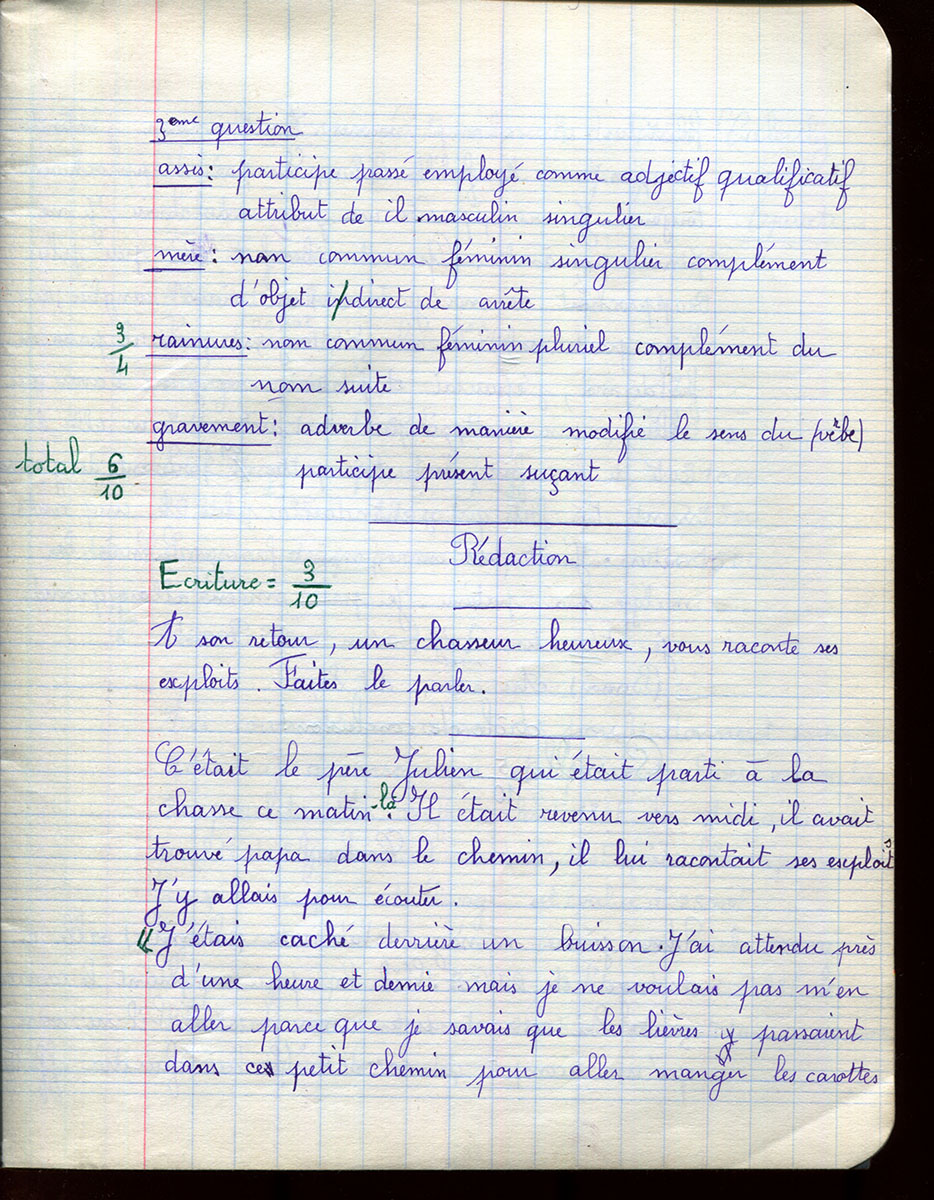 3eme question
assis: participe passé employé comme adjectif qualificatif
attribut de il masculin singulier
mère: nom commun féminin singulier complément
d'objet indirect de arrête
3/4
rainures: nom commun féminin pluriel complément du
nom suite
gravement: adverbe de manière modifie le sens du (verbe)
total 6/10
participe présent suçant
Rédaction
Ecriture = 3/10
A son retour, un chasseur heureux, vous raconte ses
exploits. Faites le parler.
C'était le père Julien qui était parti à la
chasse ce matin-là. Il était revenu vers midi, il avait
trouvé papa dans le chemin, il lui racontait ses exploits
J'y allais pour écouter.
"J'étais caché derrière un buisson. J'ai attendu près
d'une heure et demie mais je ne voulais pas m'en
aller parce que je savais que les lièvres y passaient
dans ces petit chemin pour aller manger les carottes